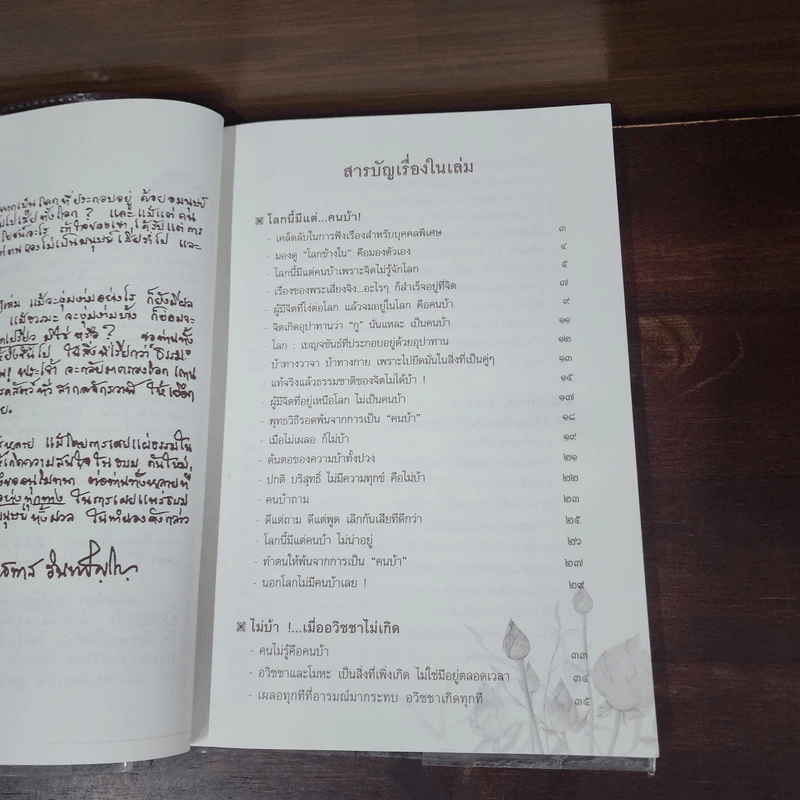 ไปเสียทั้งโลก ? และแม้แต่คน
แม้จะงุ่มง่ามอย่างไร ก็ยังมีผล
มิใช่ หรือ ? ขอท่านทั้ง
ในสิ่งที่เรียกว่า ธรรมะ
พระเจ้า จะกลับมาครองโลก แทน
แม้โดยการเผยแผ่ธรรมใน
เกิดความสนใจในธรรม กันใหม่,
ในการเผยแพร่ธรรม
สารบัญเรื่องในเล่ม
โลกนี้มีแต่...คนบ้า!
- เคล็ดลับในการฟังเรื่องสำหรับบุคคลพิเศษ ๓
- มองดู “โลกข้างใน” คือมองตัวเอง ๔
- โลกนี้มีแต่คนบ้าเพราะจิตไม่รู้จักโลก ๕
- เรื่องของพระเสียงจิง...อะไรๆ ก็สำเร็จอยู่ที่จิต ๗
- ผู้มีจิตที่โง่ต่อโลก แล้วจมอยู่ในโลก คือคนบ้า ๙
- จิตเกิดอุปาทานว่า “กู” นั่นแหละ เป็นคนบ้า ๑๑
- โลก : เบญจขันธ์ที่ประกอบอยู่ด้วยอุปาทาน ๑๒
- บ้าทางวาจา บ้าทางกาย เพราะไปยึดมั่นในสิ่งที่เป็นคู่ๆ ๑๓
- แท้จริงแล้วธรรมชาติของจิตไม่ได้บ้า ! ๑๕
- ผู้มีจิตที่อยู่เหนือโลก ไม่เป็นคนบ้า ๑๗
- พุทธวิธีรอดพ้นจากการเป็น “คนบ้า” ๑๘
- เมื่อไม่เผลอ ก็ไม่บ้า ๑๙
- ต้นตอของความบ้าทั้งปวง ๒๑
- ปกติ บริสุทธิ์ ไม่มีความทุกข์ คือไม่บ้า ๒๒
- คนบ้าถาม ๒๓
- ดีแต่ถาม ดีแต่พูด เลิกกันเสียทีดีกว่า ๒๕
- โลกนี้มีแต่คนบ้า ไม่น่าอยู่ ๒๖
- ทำตนให้พ้นจากการเป็น “คนบ้า” ๒๗
- นอกโลกไม่มีคนบ้าเลย ! ๒๙
ไม่บ้า !...เมื่ออวิชชาไม่เกิด
- คนไม่รู้คือคนบ้า ๓๓
- อวิชชาและโมหะ เป็นสิ่งที่เพิ่งเกิด ไม่ใช่มีอยู่ตลอดเวลา ๓๔
- เผลอทุกทีที่อารมณ์มากระทบ อวิชชาเกิดทุกที ๓๕